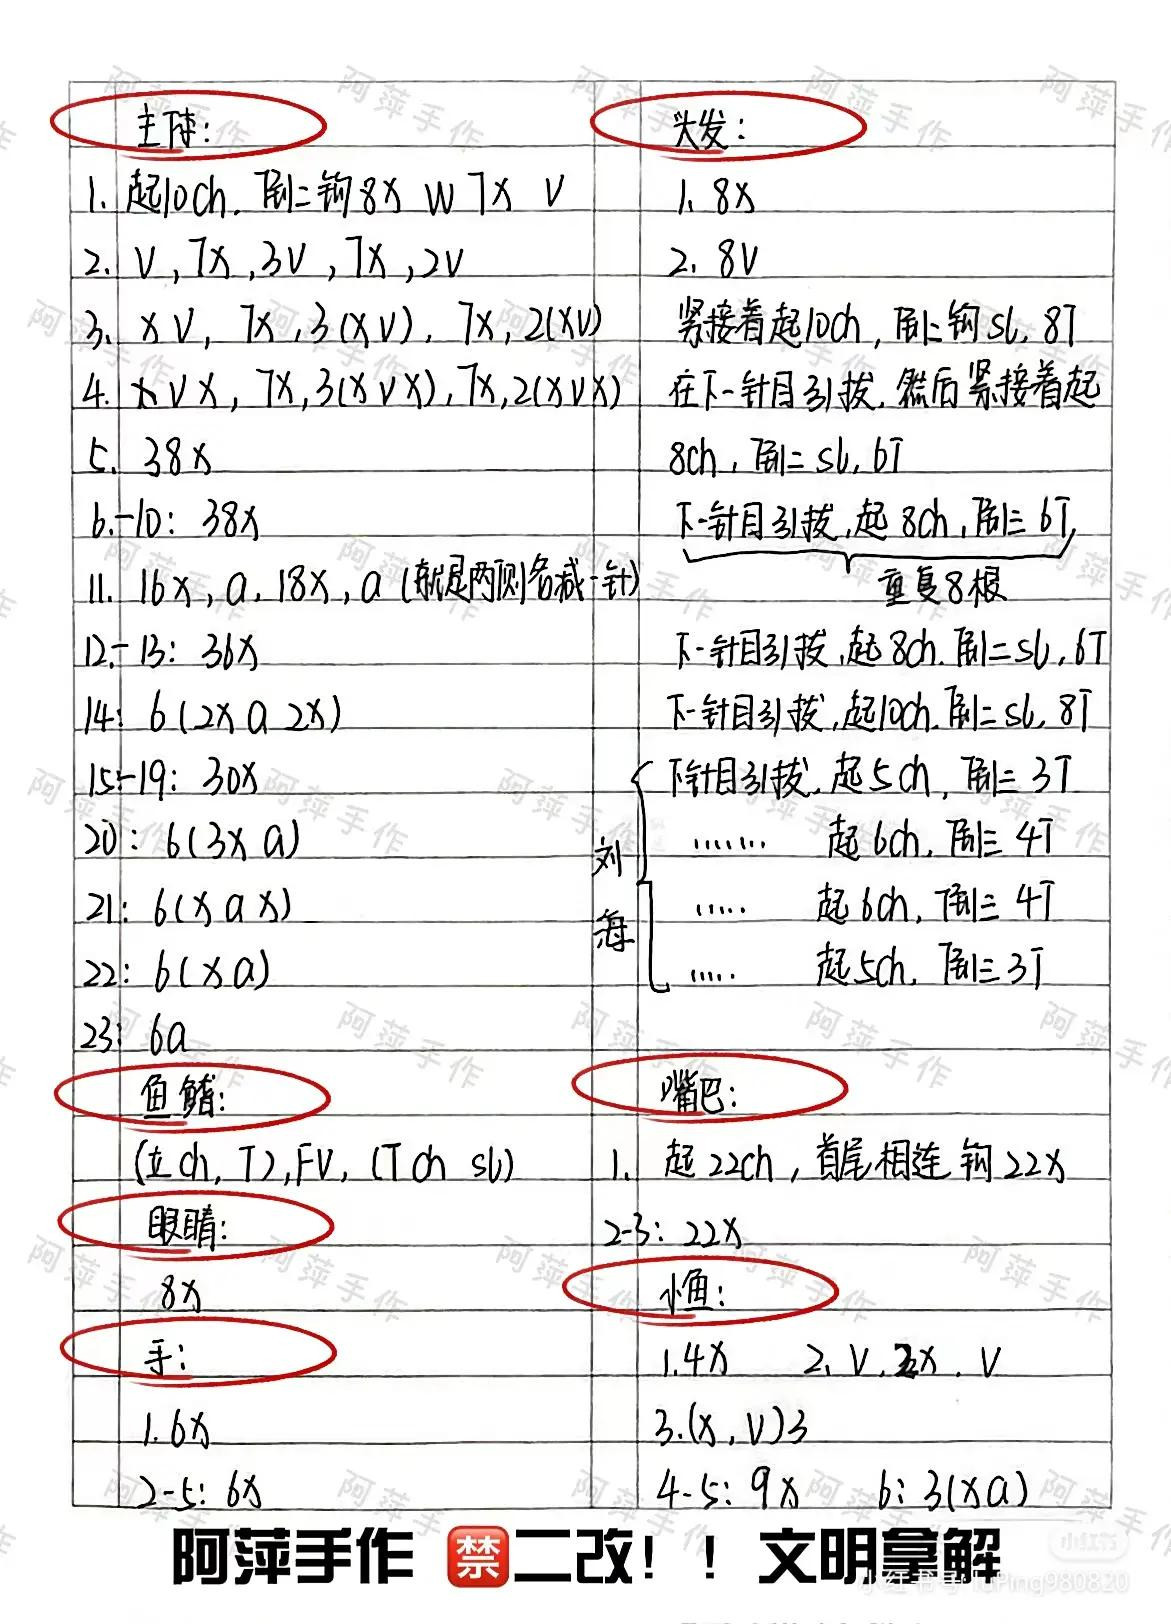 主体:
1. 起10ch. 倒二钩8X W 7X V
2. V, 7X, 3V, 7X, 2V
3. X V, 7X, 3(XV), 7X, 2(XV)
4. X V X, 7X, 3(XVX), 7X, 2(XVX)
5. 38X
6.-10: 38X
11. 16X, a, 18X, a (就是两侧各减一针)
12.-13: 36X
14: 6(2X a 2X)
15.-19: 30X
20: 6(3X a)
21: 6(X a X)
22: 6(X a)
23: 6a
鱼鳍:
(立ch, T), FV, (T ch sl)
眼睛:
8X
手:
1. 6X
2-5: 6X
头发:
1. 8X
2. 8V
紧接着起10ch, 倒二钩sl, 8T
在下一针目引拔, 然后紧接着起
8ch, 倒二 sl, 6T
下一针目引拔, 起8ch, 倒三 6T,
重复8根
下一针目引拔, 起8ch. 倒二sl, 6T
下一针目引拔, 起10ch. 倒二 sl, 8T
刘海
下针目引拔, 起5ch, 倒三 3T
....... 起6ch, 倒三 4T
..... 起6ch, 倒三 4T
..... 起5ch, 倒三 3T
嘴巴:
1. 起22ch, 首尾相连 钩22X
2-3: 22X
小鱼:
1. 4X 2. V, 2X, V
3. (X, V)3
4-5: 9X 6: 3(Xa)
阿萍手作 禁二改!! 文明拿解
阿萍手作
小红书